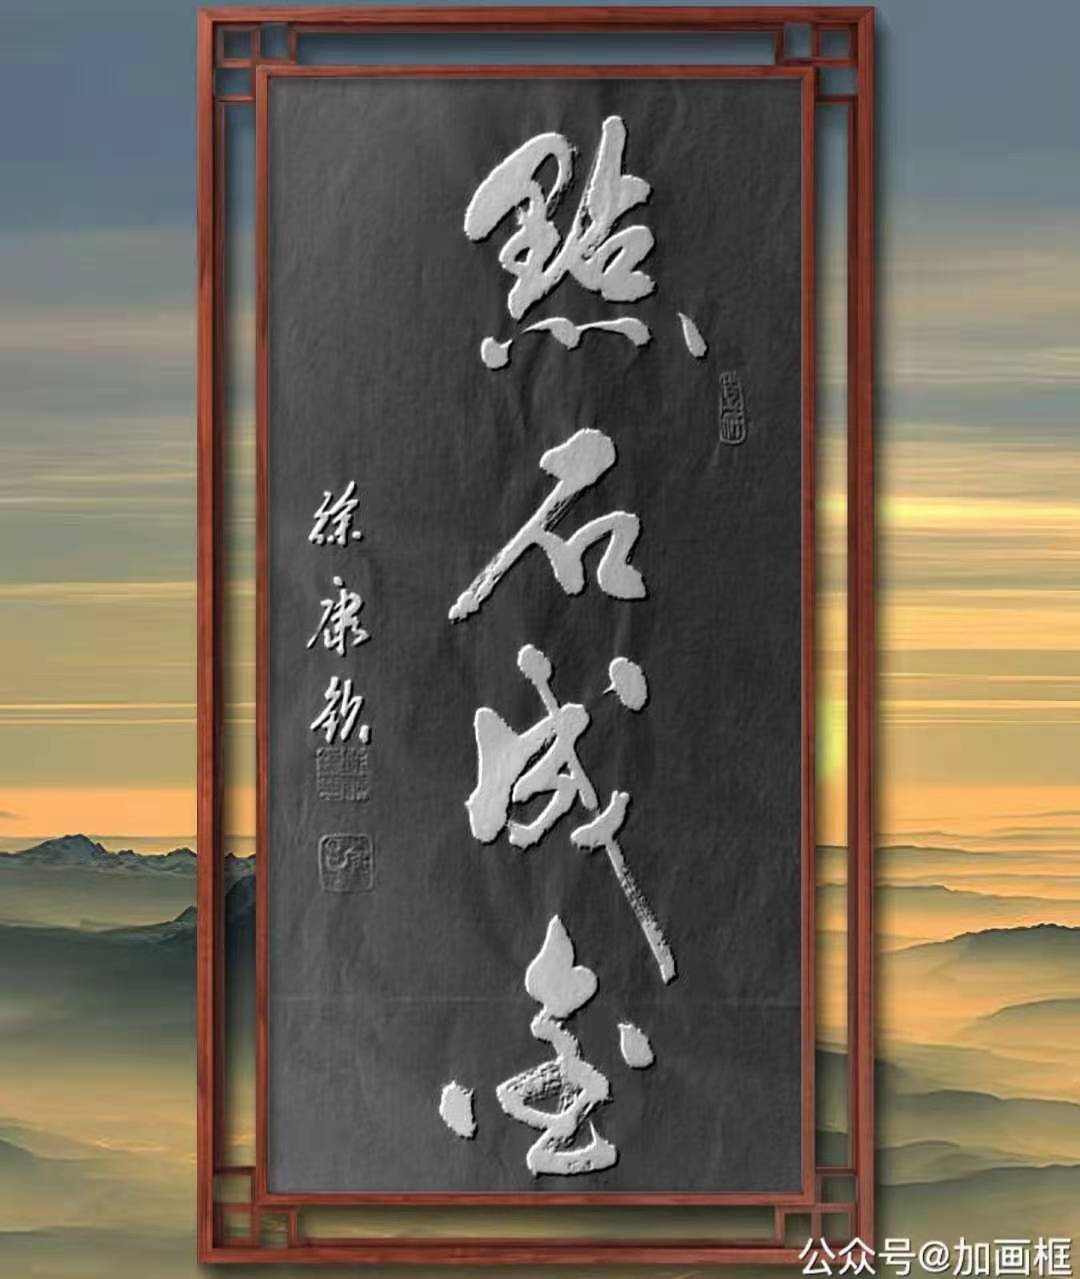 點石成金
徐康欽
公众号@加画框